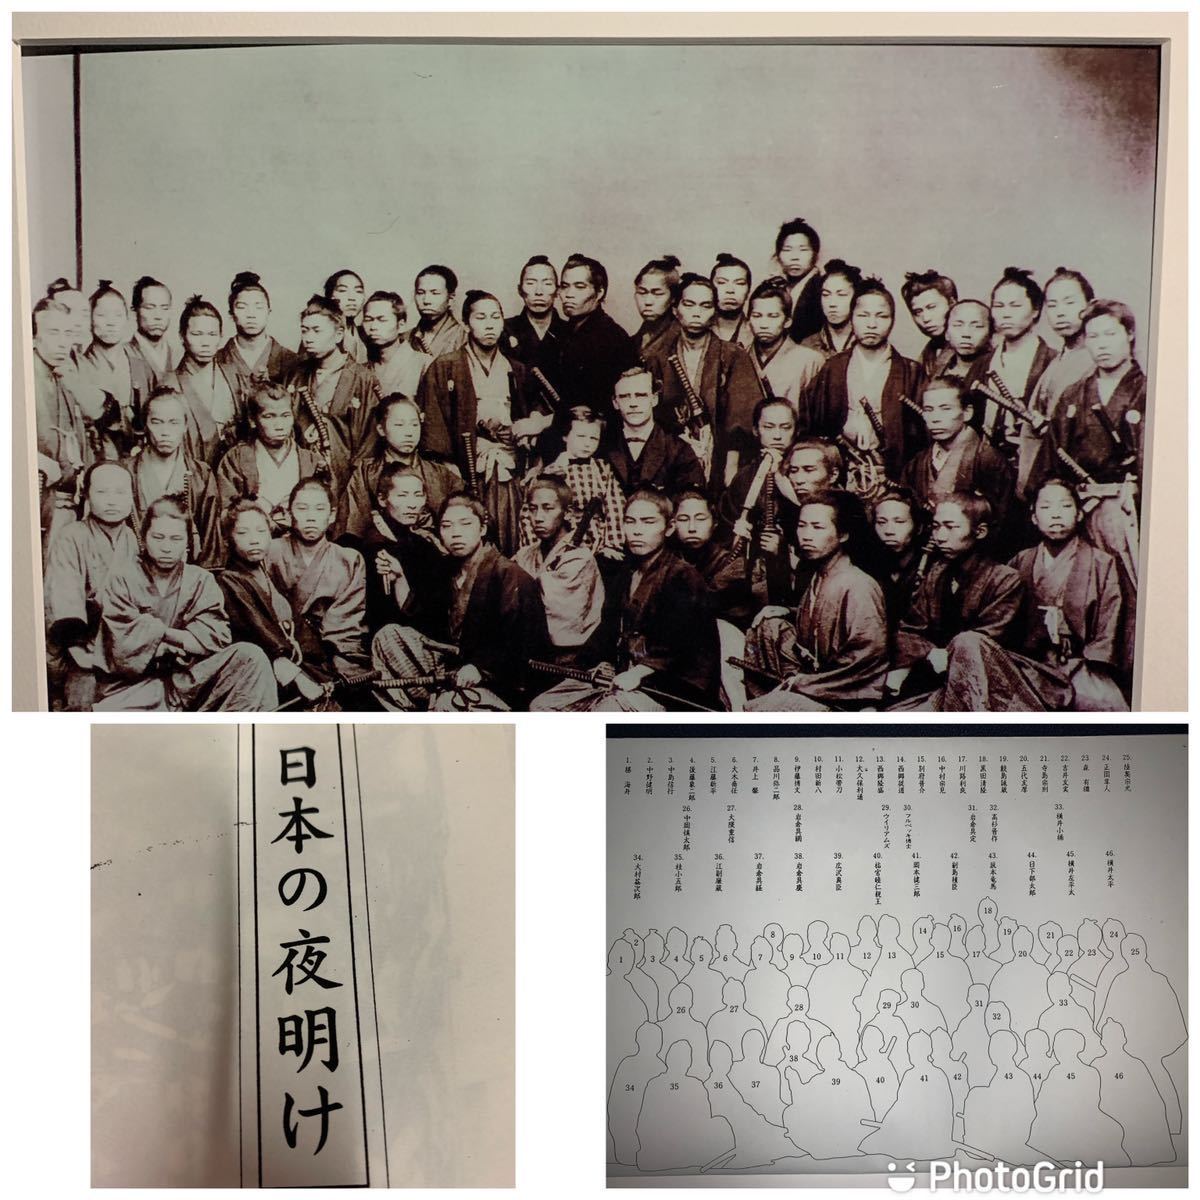 日本の夜明け
1. 勝 海舟
2. 中野健明
3. 中島信行
4. 後藤象二郎
5. 江藤新平
6. 大木喬任
7. 井上 馨
8. 品川弥二郎
9. 伊藤博文
10. 村田新八
11. 小松帯刀
12. 大久保利通
13. 西郷隆盛
14. 西郷従道
15. 別府晋介
16. 中村宗見
17. 川路利良
18. 黒田清隆
19. 鮫島誠蔵
20. 五代友厚
21. 寺島宗則
22. 吉井友実
23. 森 有禮
24. 正岡隼人
25. 陸奥宗光
26. 中岡慎太郎
27. 大隈重信
28. 岩倉具綱
29. ウイリアムズ
30. フルベッキ博士
31. 岩倉具定
32. 高杉晋作
33. 横井小楠
34. 大村益次郎
35. 桂小五郎
36. 江副廉蔵
37. 岩倉具経
38. 岩倉具慶
39. 広沢真臣
40. 祐宮睦仁親王
41. 岡本健三郎
42. 副島種臣
43. 坂本竜馬
44. 日下部太郎
45. 横井左平太
46. 横井太平
1 2 3 4 5 6 7 8 9 10 11 12 13 14 15 16 17 18 19 20 21 22 23 24 25
26 27 28 29 30 31 32 33
34 35 36 37 38 39 40 41 42 43 44 45 46
PhotoGrid